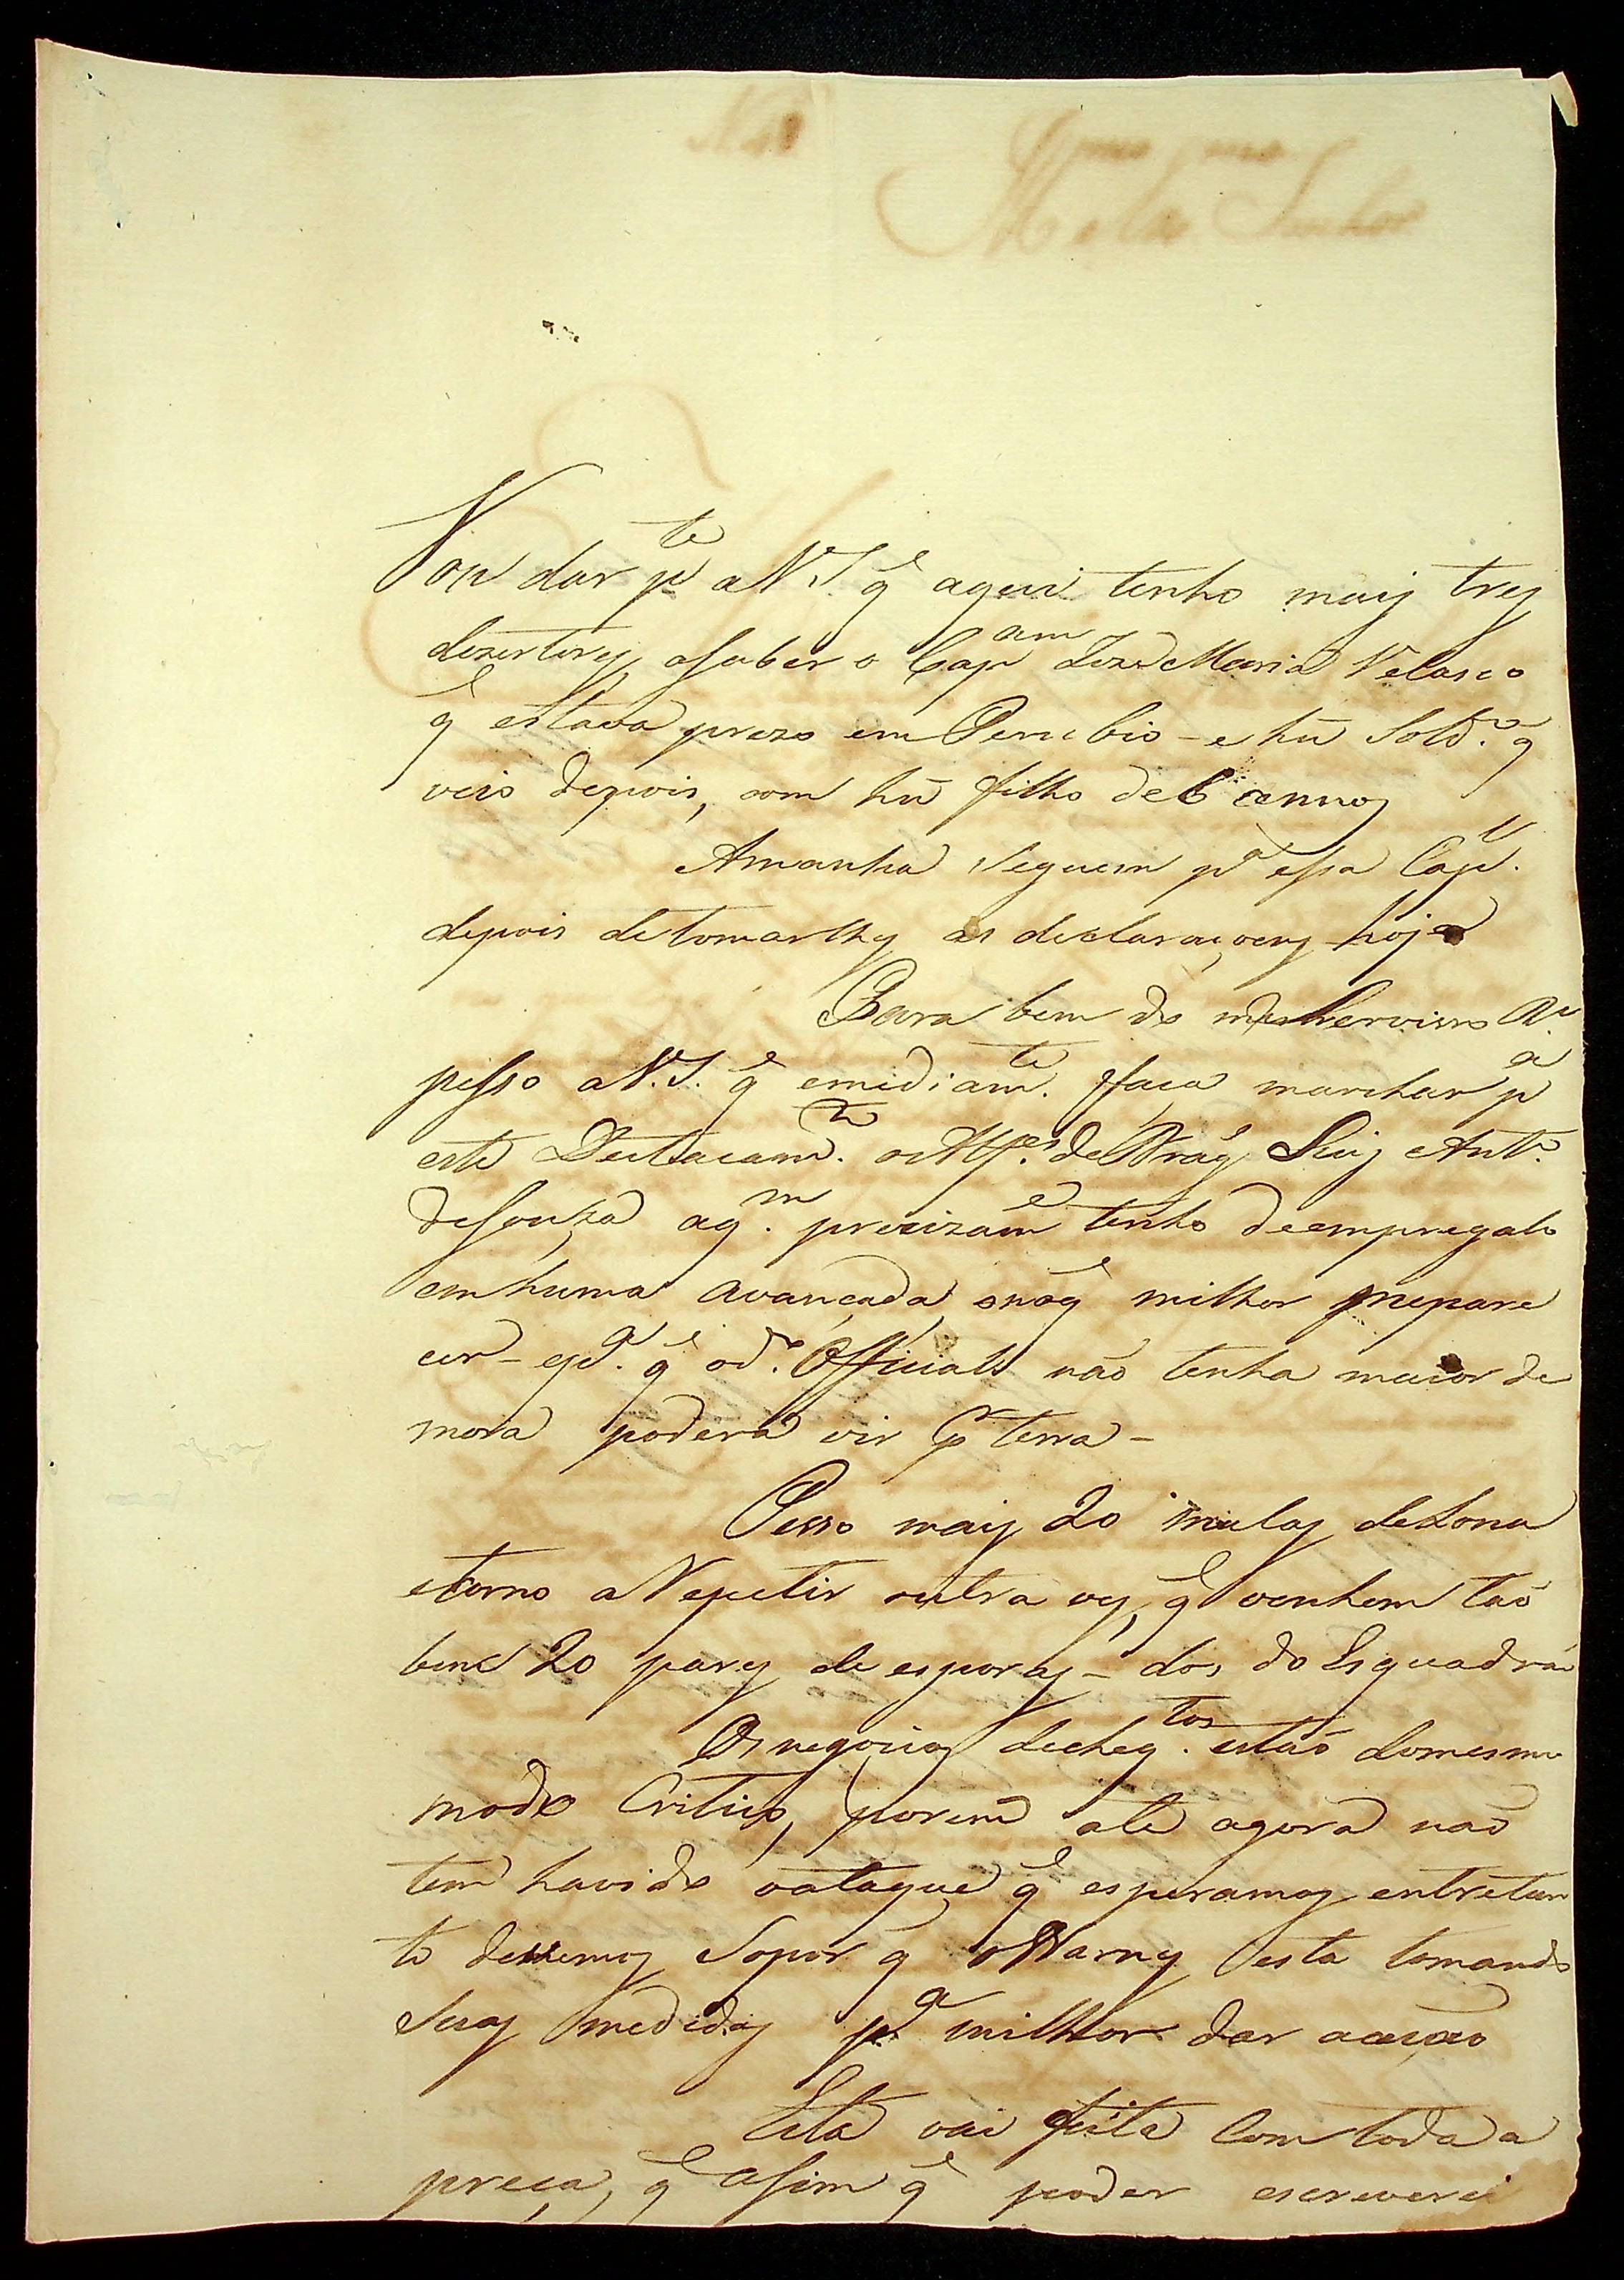 Vou dar p.te a V. S. q̃ aqui tenho mais tres
dezertores, asaber o Cap.am Joze Maria Velasco
q̃ estava prezo em Perubio - e hũ Sold.o q̃
veio depois, com hũ filho de 6 annos
Amanha seguem p.a essa Cap.l
depois detomarlhes as declaraçoens hoje
Para bem do mesmo serviço R.l
pesso a V. S. q̃ emediam.te ffaça marchar p.a
este Destacam.to o Alf.es de Drag.s Luis Ant.o
deSouza aq.m precizam.e tenho deempregalo
em huma avançada, o
cer - ep.a q̃ o d.o Official não tenha maior de
mora poderá vir p.r terra -
Pesso mais 20 malas deLona
etorno a Repetir outra vez, q̃ venhem tão
bem 20 pares de esporas - dos do Esquadrão
Os negocios deCheq.tos estão domesmo
modo Critico, porem até agora não
tem havido oataque q̃ esperamos, entretan
to devemos Sopor q̃ está tomando
suas medidas p.a milhor dar aacção
Esta vai feita Com toda a
preça, q̃ asim q̃ poder escreverei